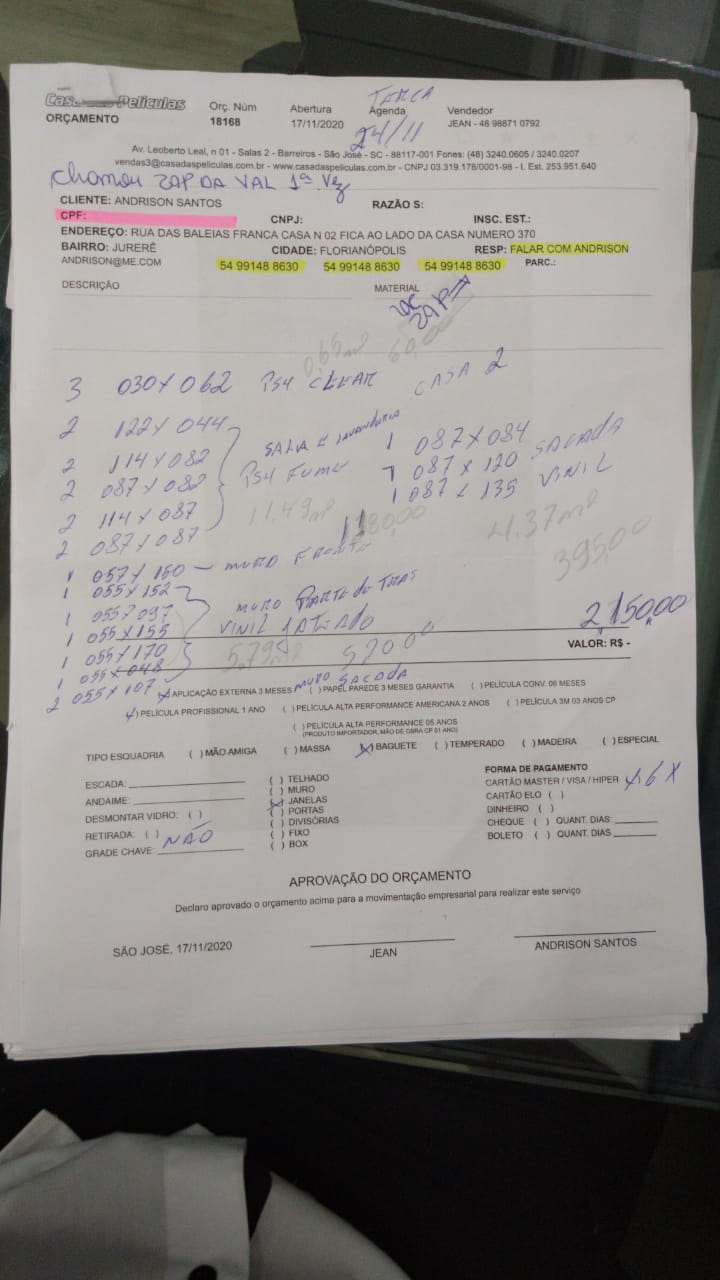 Casa das Películas
ORÇAMENTO
Orç. Núm
18168
Abertura
17/11/2020
TERÇA
Agenda
24/11
Vendedor
JEAN - 48 98871 0792
Av. Leoberto Leal, n 01 - Salas 2 - Barreiros - São José - SC - 88117-001 Fones: (48) 3240.0605 / 3240.0207
vendas3@casadaspeliculas.com.br - www.casadaspeliculas.com.br - CNPJ 03.319.178/0001-98 - I. Est. 253.951.640
chamou ZAP DA VAL 1ª Vez
CLIENTE: ANDRISON SANTOS RAZÃO S:
CPF: CNPJ: INSC. EST.:
ENDEREÇO: RUA DAS BALEIAS FRANCA CASA N 02 FICA AO LADO DA CASA NUMERO 370
BAIRRO: JURERÊ CIDADE: FLORIANÓPOLIS RESP: FALAR COM ANDRISON
ANDRISON@ME.COM 54 99148 8630 54 99148 8630 54 99148 8630 PARC.:
DESCRIÇÃO MATERIAL
ZAP
0,65m² 60,00
3 030 X 062 PS4 CLEAR CASA 2
2 122 X 044
2 114 X 082 SALA E lavanderia 1 087 X 084
2 087 X 082 PS4 FUME 1 087 X 120 SACADA
2 114 X 087 1 087 X 135 VINIL
2 087 X 087 11,49m² 1180,00 4.37m²
1 057 X 150 - MURO FRONTE 395,00
1 055 X 152
1 055 X 097 MURO PARTE de TRAS
1 055 X 155 VINIL JATEADO 2,150,00
1 055 X 170 5,79m2 520 00 VALOR: R$ -
1 055 X 048
2 055 X 107 MURO SACADA
(X) APLICAÇÃO EXTERNA 3 MESES ( ) PAPEL PAREDE 3 MESES GARANTIA ( ) PELÍCULA CONV. 06 MESES
(X) PELÍCULA PROFISSIONAL 1 ANO ( ) PELÍCULA ALTA PERFORMANCE AMERICANA 2 ANOS ( ) PELÍCULA 3M 03 ANOS CP
( ) PELÍCULA ALTA PERFORMANCE 05 ANOS
(PRODUTO IMPORTADOR, MÃO DE OBRA CP 01 ANO)
TIPO ESQUADRIA ( ) MÃO AMIGA ( ) MASSA (X) BAGUETE ( ) TEMPERADO ( ) MADEIRA ( ) ESPECIAL
ESCADA:
ANDAIME:
DESMONTAR VIDRO: ( )
RETIRADA: ( ) NÃO
GRADE CHAVE:
( ) TELHADO
( ) MURO
(X) JANELAS
( ) PORTAS
( ) DIVISÓRIAS
( ) FIXO
( ) BOX
FORMA DE PAGAMENTO
CARTÃO MASTER / VISA / HIPER (X) 6 X
CARTÃO ELO ( )
DINHEIRO ( )
CHEQUE ( ) QUANT. DIAS:
BOLETO ( ) QUANT. DIAS
APROVAÇÃO DO ORÇAMENTO
Declaro aprovado o orçamento acima para a movimentação empresarial para realizar este serviço
SÃO JOSÉ, 17/11/2020
JEAN
ANDRISON SANTOS